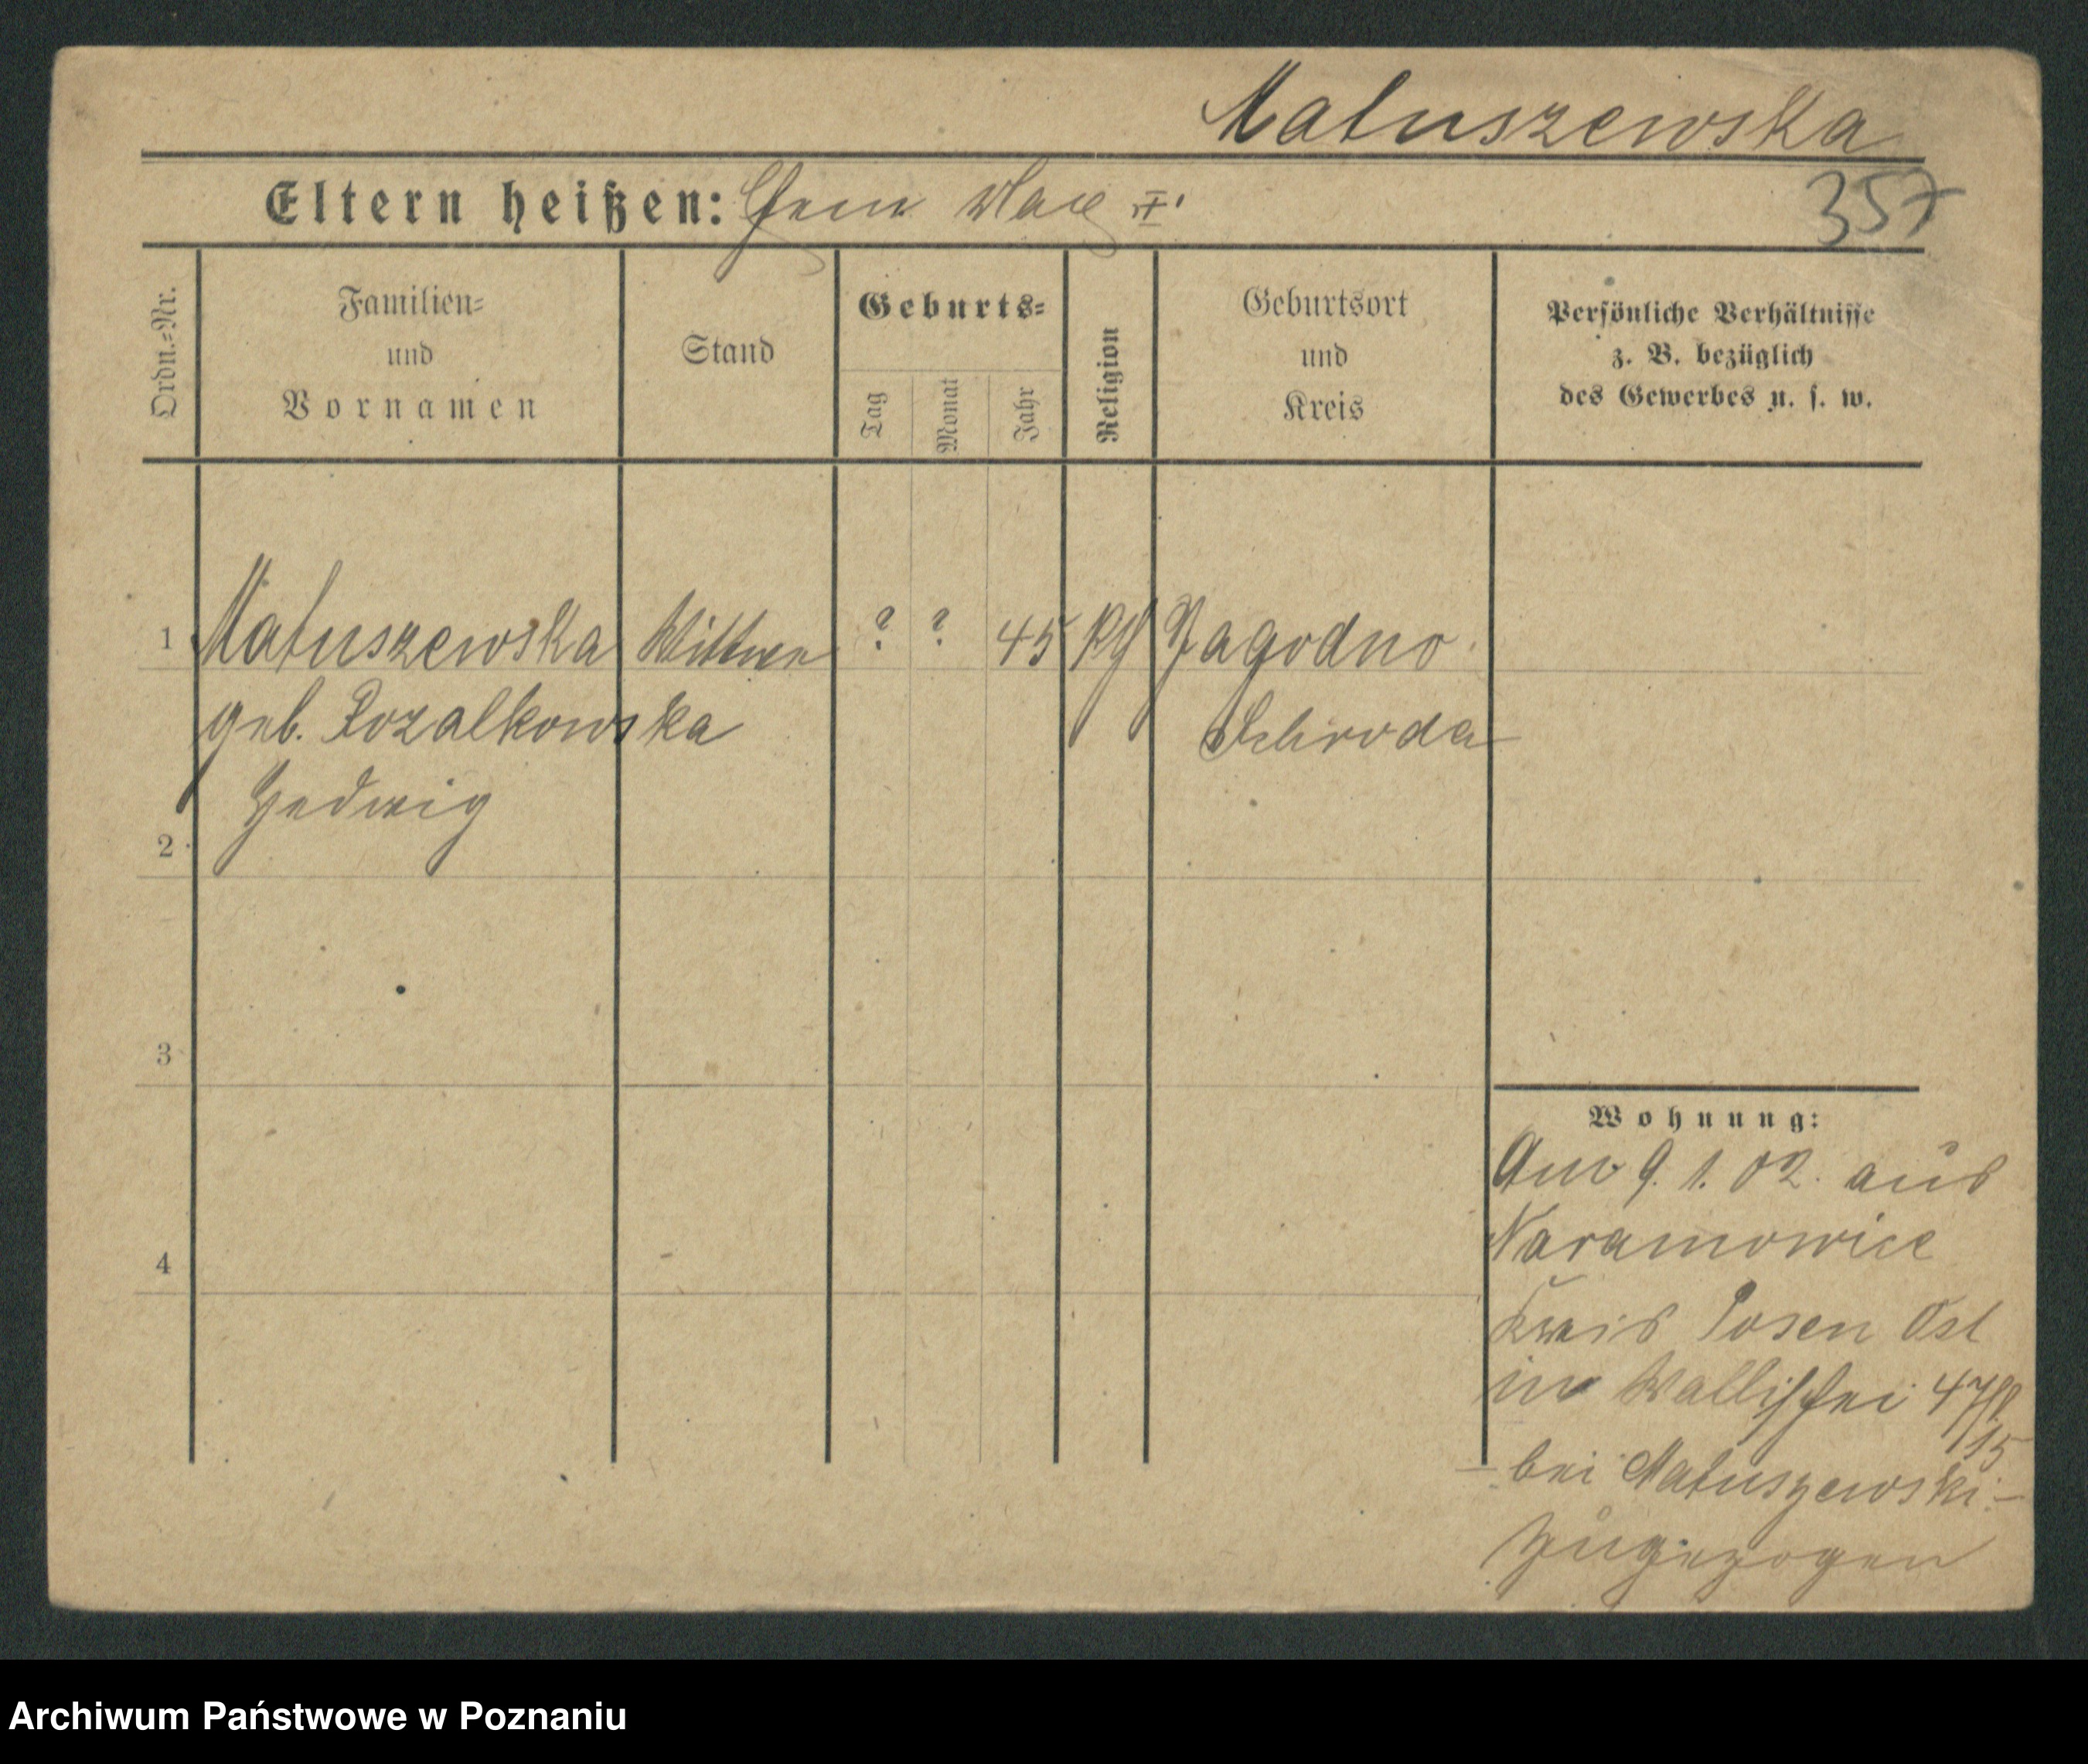 Matuszewska
Eltern heißen:
357
Ordn.=Nr.
Familien=
und
Vornamen
Stand
Geburts=
Tag
Monat
Jahr
Religion
Geburtsort
und
Kreis
Persönliche Verhältnisse
z. B. bezüglich
des Gewerbes u. s. w.
1 Matuszewska Wittwe ? ? 45 Jagodno
geb. Rozalkowska Schroda
Hedwig
2
3
4
Wohnung:
Am 9. 1. 02. aus
Naramowice
Kreis Posen Ost
in Wallischei 47/8
15
bei Matuszewski
zugezogen
Archiwum Państwowe w Poznaniu